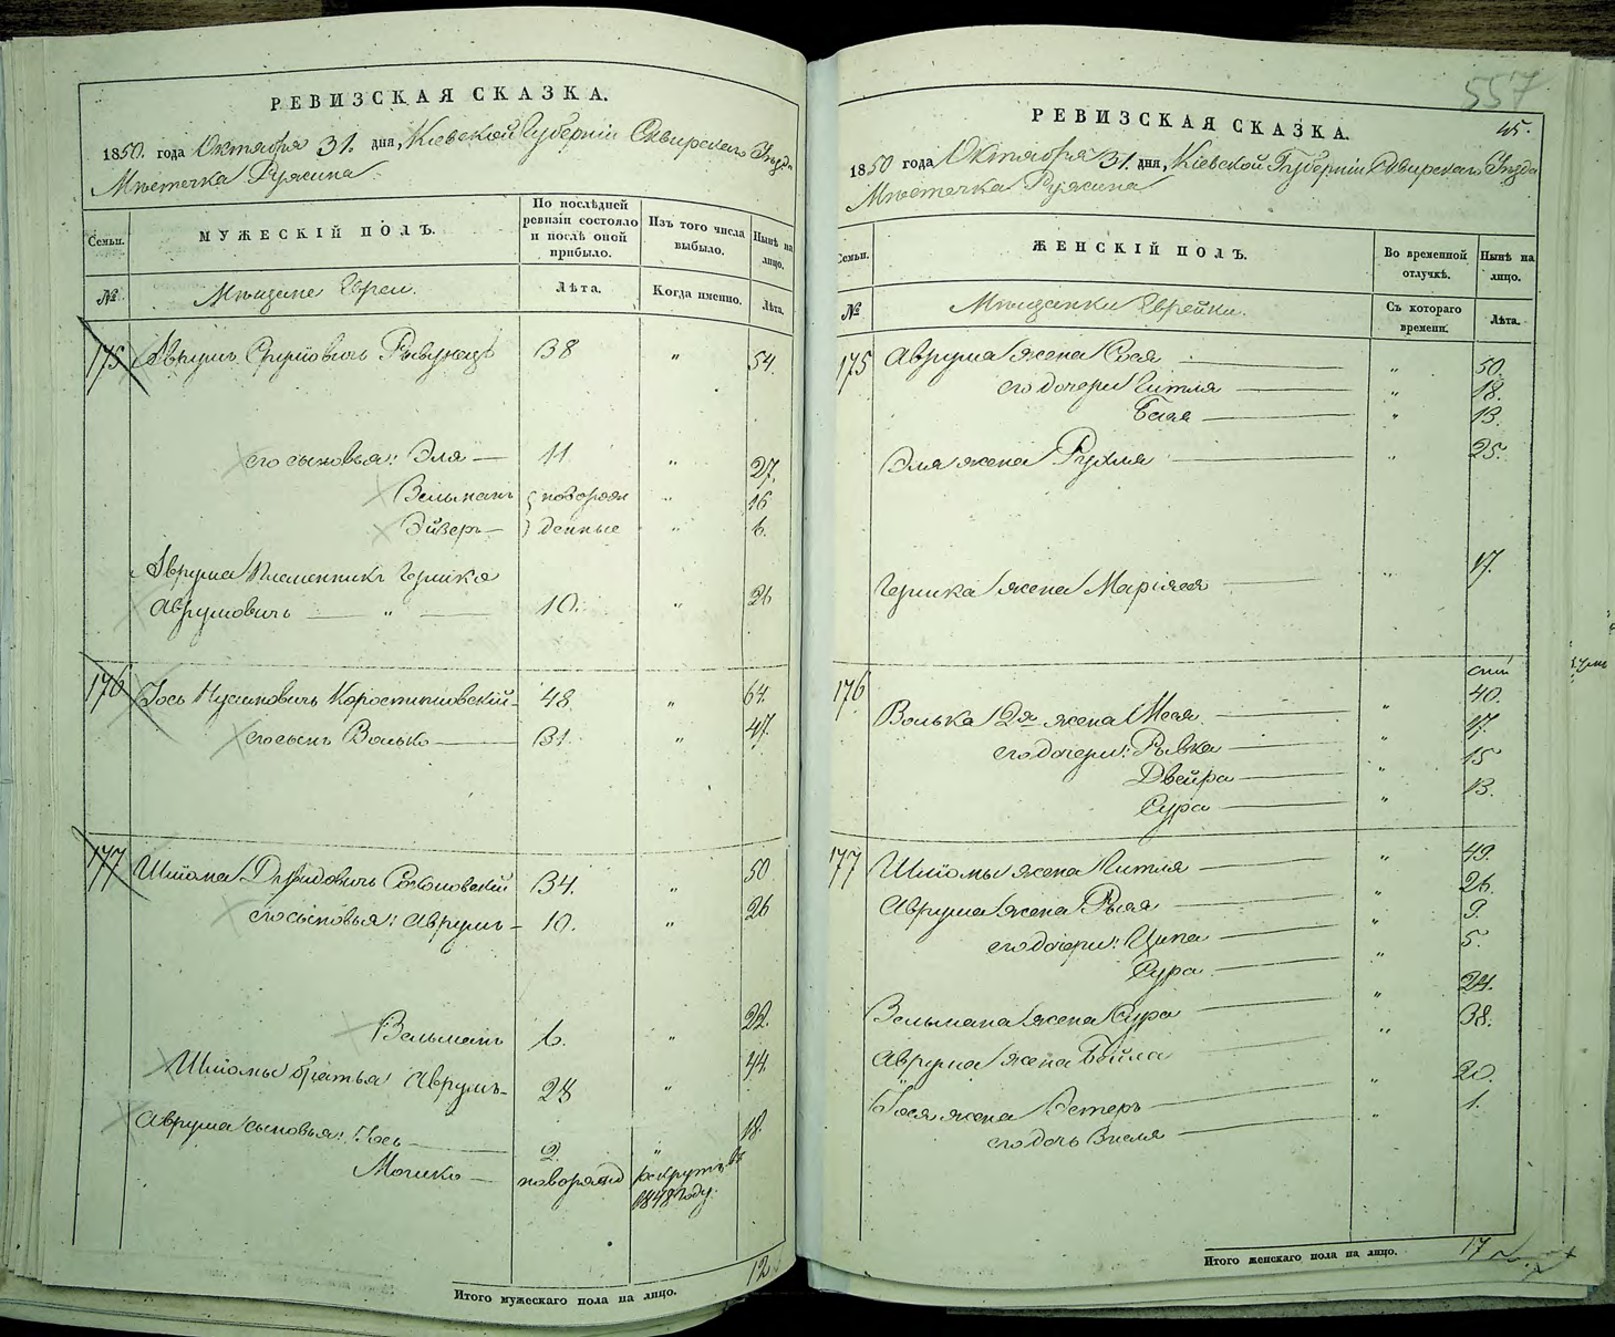 РЕВИЗСКАЯ СКАЗКА.
1850. года Октября 31. дня, Кіевской Губерніи Сквирскаго Уѣзда
Мѣстечка Ружина.
Семьи.
МУЖЕСКІЙ ПОЛЪ.
По послѣдней ревизіи состояло и послѣ оной прибыло.
Изъ того числа выбыло.
Нынѣ на лицо.
№
Мѣщане Евреи.
Лѣта.
Когда именно.
Лѣта.
175 Аврумъ 38 " 54.
его сыновья: Эля — 11 " 27.
Вельманъ новорож " 16
— денные " 6.
Аврума Племенникъ Гершко
Аврумовичъ — " — 10. " 26
176 Іось Коростышовскій — 48 " 64.
его сынъ Волько — 31. " 47.
177 Шліома Давидовичъ 34. " 50
его сыновья: Аврумъ — 10. " 26
Вельманъ 6. " 22.
Шліомы братья Аврумъ — 28 " 44.
Аврума сыновья: Іось — 2. " 18.
Мошко — новорожд рекрутъ въ
1848 году.
12
Итого мужескаго пола на лицо.
557
45.
РЕВИЗСКАЯ СКАЗКА.
1850 года Октября 31. дня, Кіевской Губерніи Сквирскаго Уѣзда
Мѣстечка Ружина
Семьи.
ЖЕНСКІЙ ПОЛЪ.
Во временной отлучкѣ.
Нынѣ на лицо.
№
Мѣщанки Еврейки.
Съ котораго времени.
Лѣта.
175 Аврума жена Сося — " 50.
его дочери Гитля — " 18.
Бася — " 13.
Эля жена Рухля — " 25.
Гершка жена Маріяся — " 17.
176 Волька 2я жена — " 40.
его дочери: Рывка — " 17.
Двейра — " 15
Сура — " 13.
177 Шліомы жена Гитля — " 49.
Аврума жена — " 26.
его дочери: Ципа — " 9.
Сура — " 5.
Вельмана жена Сура — " 24.
Аврума жена Бейла — " 38.
Іося жена Эстеръ — " 20.
его дочь — " 1.
Итого женскаго пола на лицо. 17